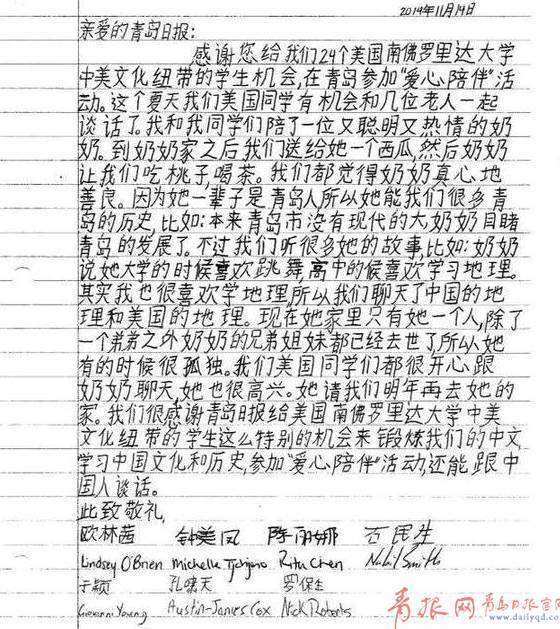 2014年11月14日
亲爱的青岛日报:
感谢您给我们24个美国南佛罗里达大学
中美文化纽带的学生机会,在青岛参加“爱心陪伴”活
动。这个夏天我们美国同学有机会和几位老人一起
谈话了。我和我同学们陪了一位又聪明又热情的奶
奶。到奶奶家之后我们送给她一个西瓜,然后奶奶
让我们吃桃子,喝茶。我们都觉得奶奶真心地
善良。因为她一辈子是青岛人所以她能我们很多青
岛的历史,比如:本来青岛市没有现代的大,奶奶目睹
青岛的发展了。不过我们听很多她的故事,比如:奶奶
说她大学的时候喜欢跳舞,高中的候喜欢学习地理。
其实我也很喜欢学地理所以我们聊天了中国的地
理和美国的地理。现在她家里只有她一个人,除了
一个弟弟之外奶奶的兄弟姐妹都已经去世了所以她
有的时候很孤独。我们美国同学们都很开心跟
奶奶聊天,她也很高兴。她请我们明年再去她的
家。我们很感谢青岛日报给美国南佛罗里达大学中美
文化纽带的学生这么特别的机会来锻炼我们的中文,
学习中国文化和历史,参加“爱心陪伴”活动,还能跟中
国人谈话。
此致敬礼,
欧林茜 钟美凤 陈丽娜 石民生
Lindsey O'Brien Michelle Ritu Chen Nabil Smith
于颖 孔啸天 罗保生
Giovanni Young Austin-James Cox Nick Roberts
青报网 青岛日报官网
www.dailyqd.com